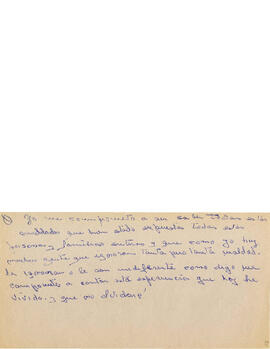 Yo me comprometo a ser saber todas estas
crueldades que han sido expuestas todas estas
personas y familias enteras y que como yo hay
mucha gente que ignoran tanta pero tanta maldad.
la ignoran o le son indiferente como digo me
comprometo a contar está experiencia que hoy he
vivido. y que no olvidaré